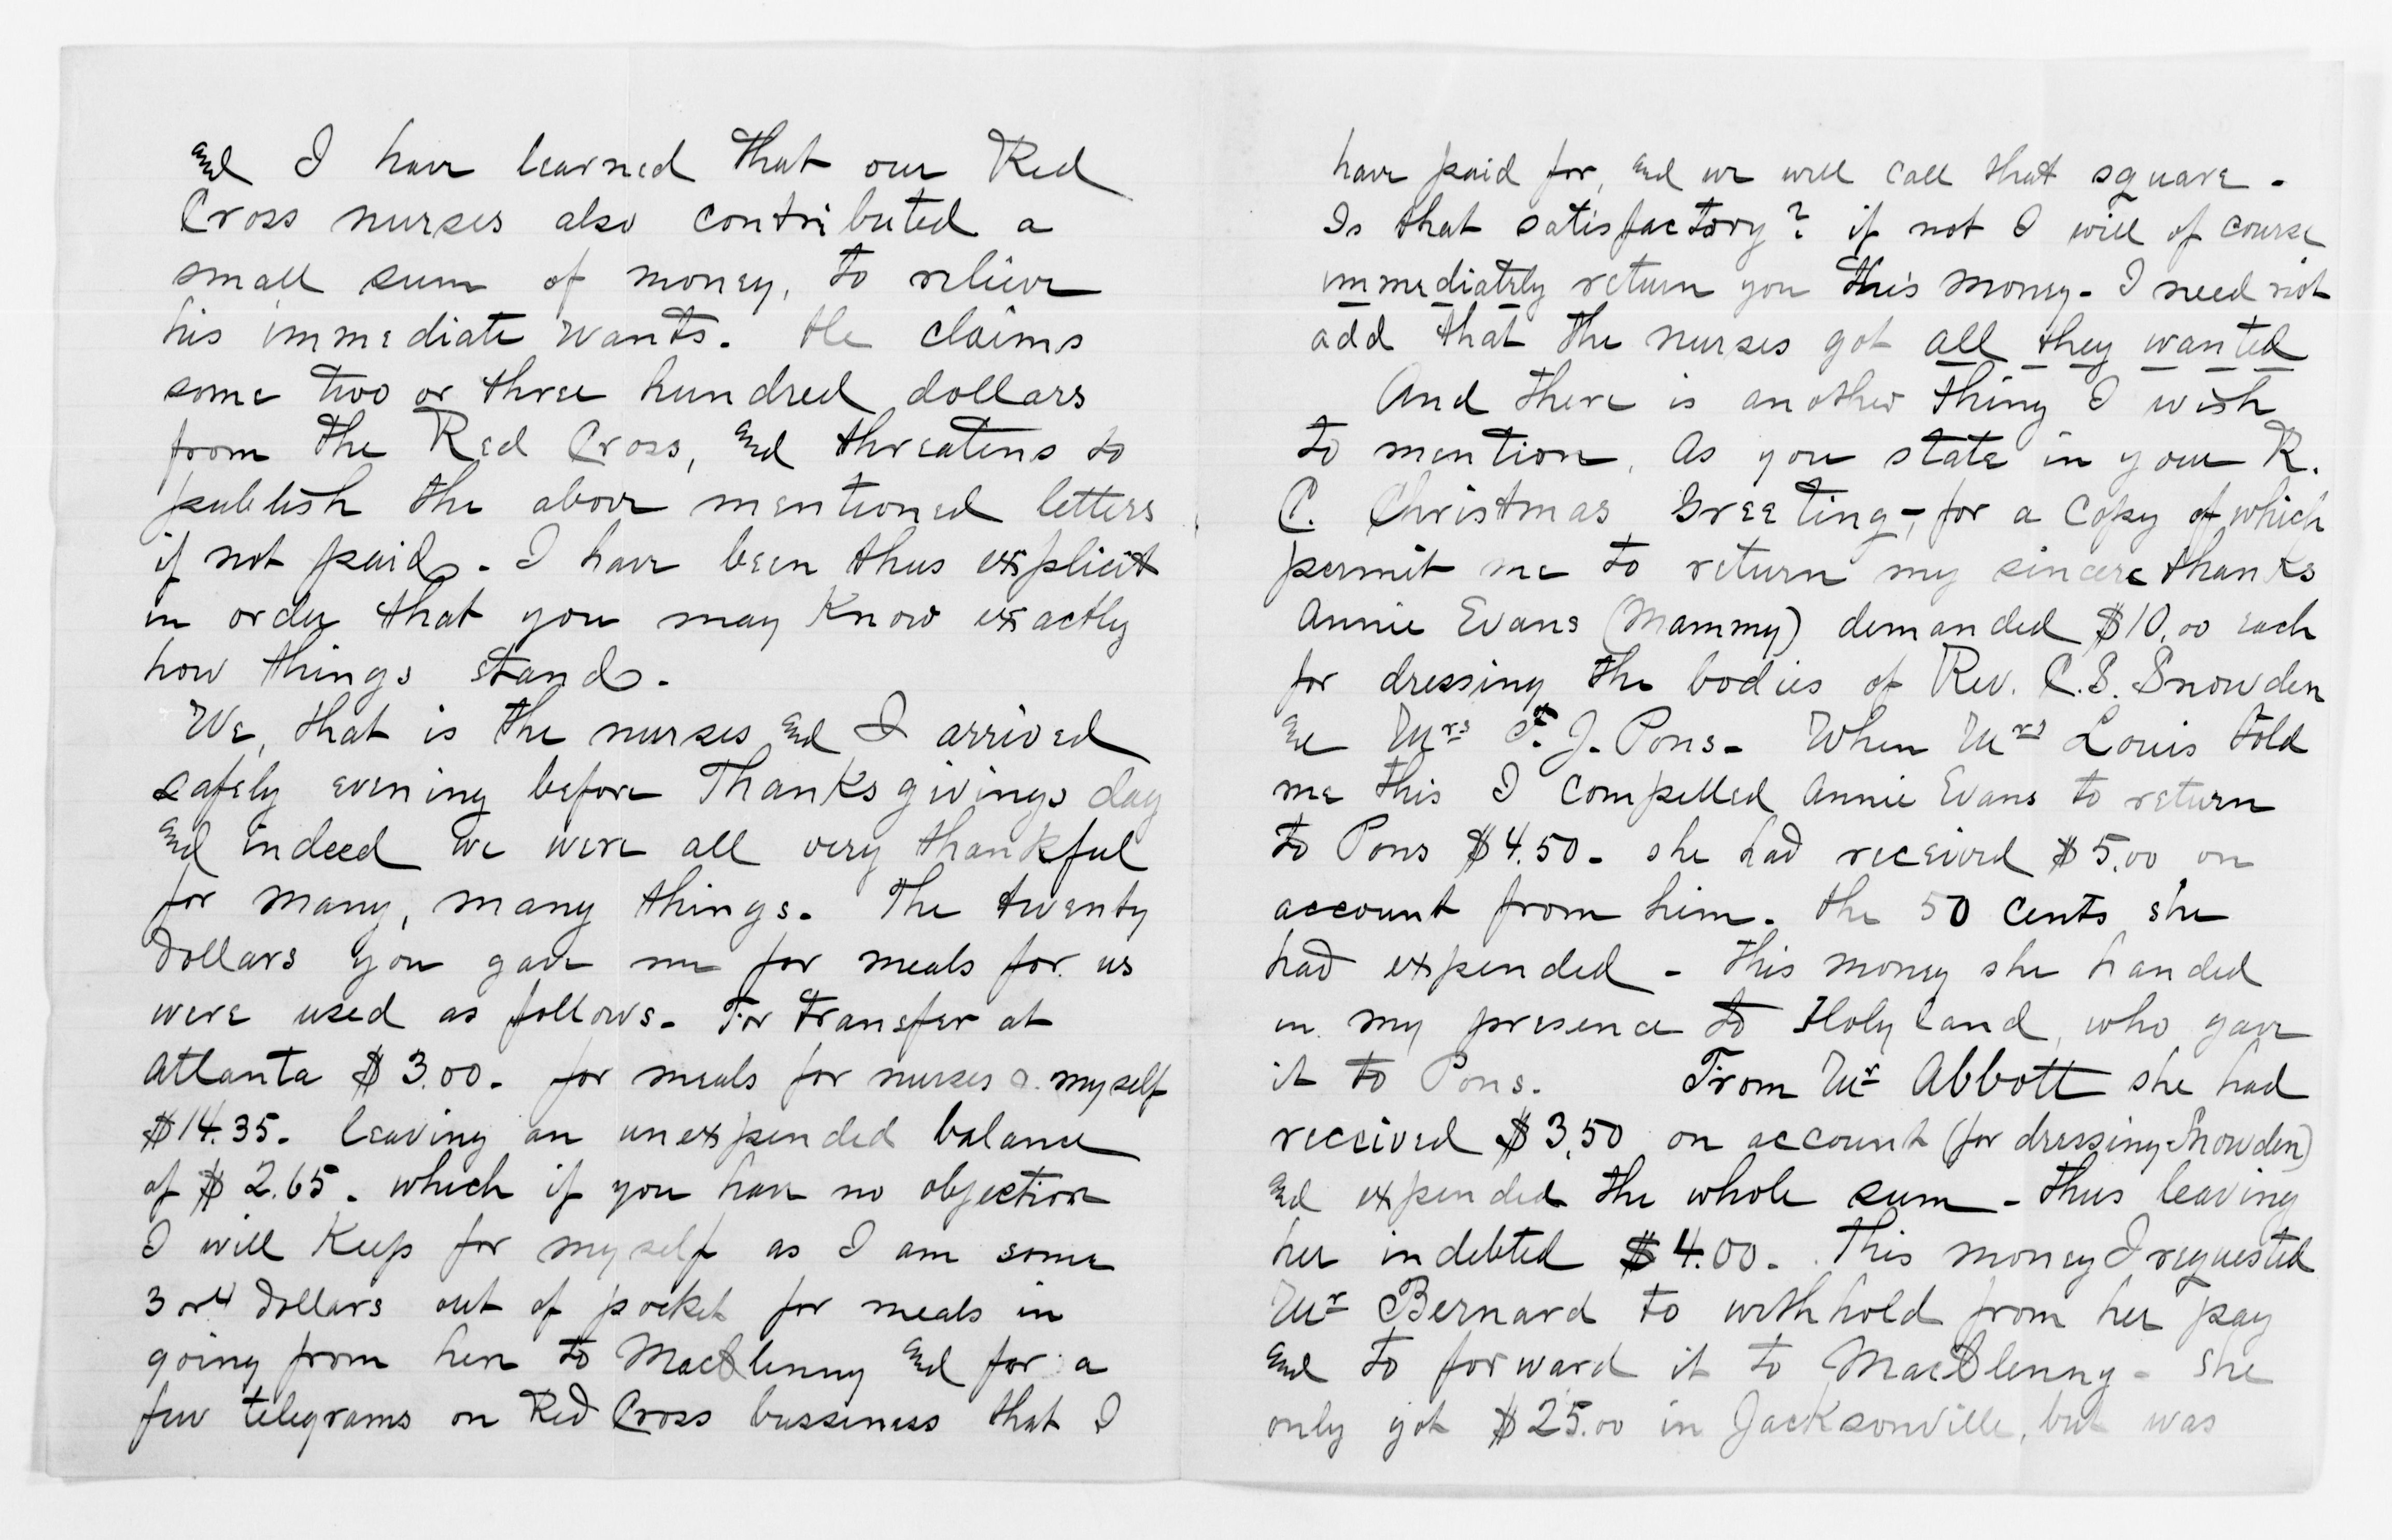 and I have learned that our Red
Cross nurses also contributed a
small sum of money, to relieve
his immediate wants. He claims
some two or three hundred dollars
from the Red Cross, and threatens to
publish the above mentioned letters
if not paid. I have been thus explicit
in order that you may Know exactly
how things stand.
We, that is the nurses and I arrived
safely evening before Thanksgivings day
and indeed we were all very thankful
for many, many things. The twenty
Dollars you gave me for meals for us
were used as follows. For transfer at
Atlanta $3.00. for meals for nurses a. myself
$14.35. leaving an unexpended balance
of $2.65. which if you have no objection
I will Keep for myself as I am some
3 or 4 Dollars out of pocket for meals in
going from here to MacClenny and for a
few telegrams on Red Cross bussiness that I
have paid for, and we will call that square.
Is that satisfactory? if not I will of course
immediately return you this money. I need not
add that the nurses got all they wanted
And there is another thing I wish
to mention. As you state in your R.
C. Christmas Greeting, for a copy of which
permit me to return my sincere thanks
Annie Evans (Mammy) demanded $10.00 each
for dressing the bodies of Rev. C.S. Snowden
and Mrs F. J. Pons. When Mrs Louis told
me this I compelled Annie Evans to return
to Pons $4.50. she had received $5.00 on
account from him. the 50 cents she
had expended - This money she handed
in my presence to Holyland, who gave
it to Pons. From Mr Abbott she had
received $3.50 on account (for dressing Snowden)
and expended the whole sum - thus leaving
her indebted $4.00. This money I requested
Mr Bernard to withhold from her pay
and to forward it to MacClenny - She
only got $25.00 in Jacksonville, but was